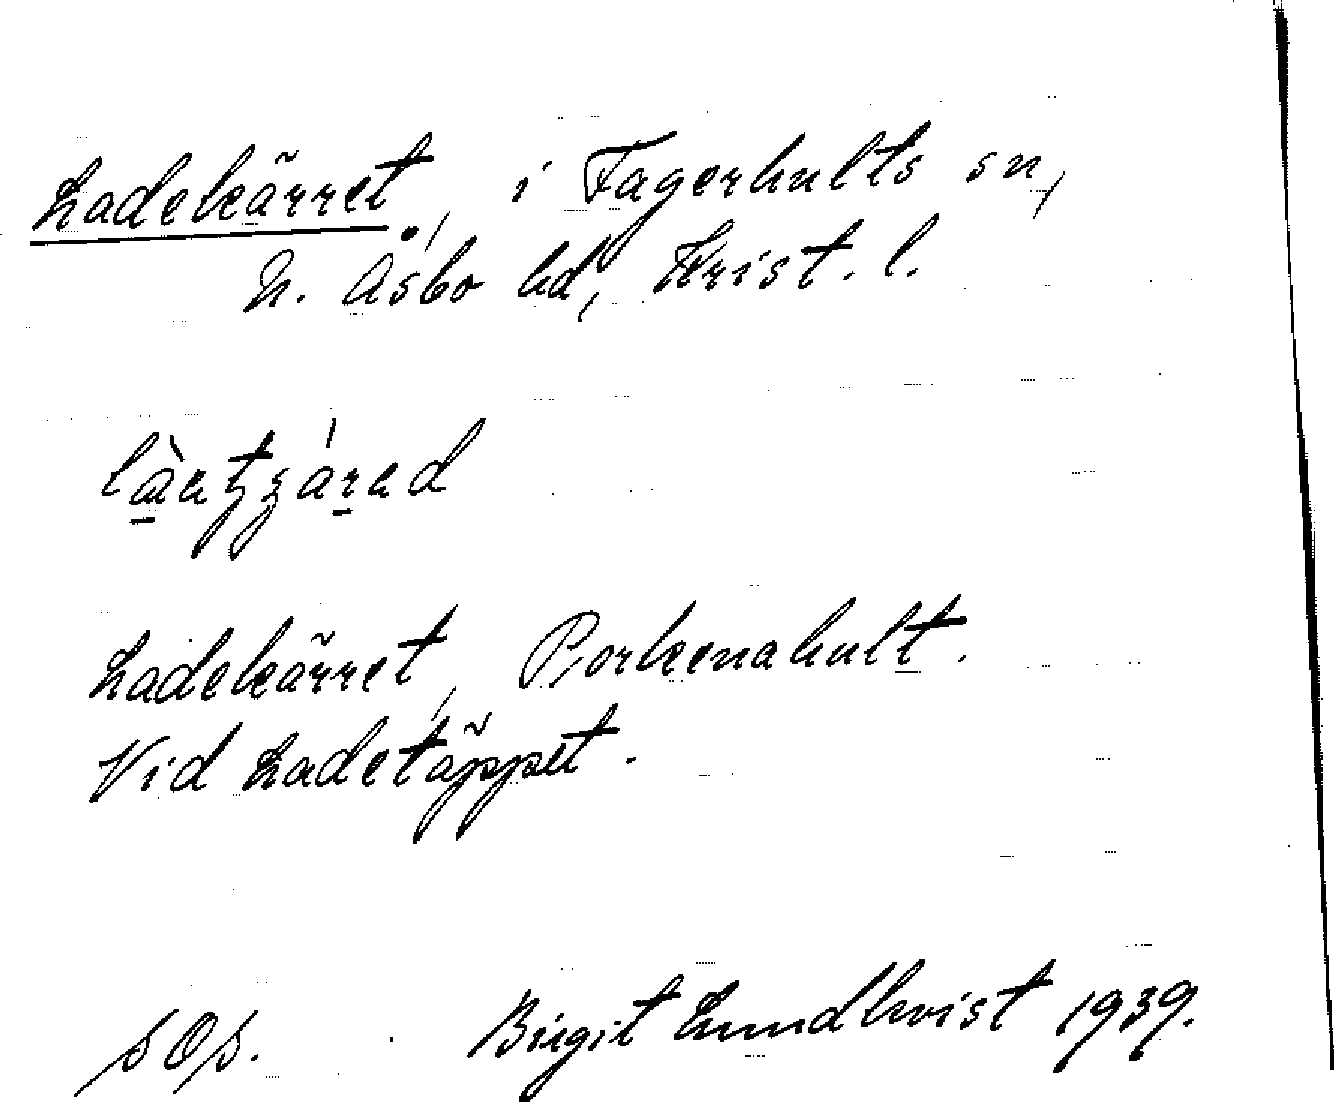 Ladekärret, i Fagerhults sn,
N. Åsbo hd, Krist. l.
Ladekärret, Porkenahult.
Vid Ladetäppet.
SOS. Birgit Lundkvist 1939.